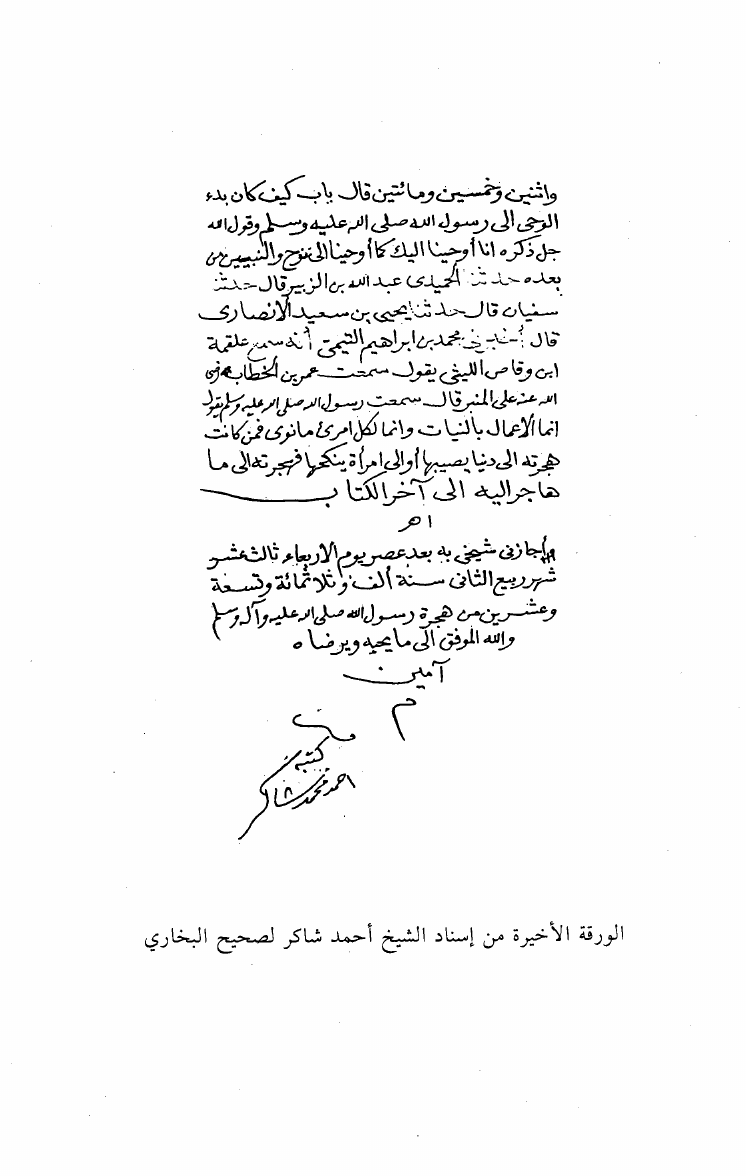 واثنين وخمسين ومائتين قال باب كيف كان بدء
الوحى الى رسول الله صلى الله عليه وسلم وقول الله
جل ذكره انا أوحينا اليك كما أوحينا الى نوح والنبيين من
بعده حدثنا الحميدى عبد الله بن الزبير قال حدثنا
سفيان قال حدثنا يحيى بن سعيد الانصارى
قال أخبرنى محمد بن ابراهيم التيمى أنه سمع علقمة
ابن وقاص الليثى يقول سمعت عمر بن الخطاب رضى
الله عنه على المنبر قال سمعت رسول الله صلى الله عليه وسلم يقول
انما الأعمال بالنيات وانما لكل امرئ ما نوى فمن كانت
هجرته الى دنيا يصيبها أو الى امرأة ينكحها فهجرته الى ما
هاجر اليه الى آخر الكتاب
اهـ
أجازنى شيخى به بعد عصر يوم الاربعاء ثالث عشر
شهر ربيع الثانى سنة ألف وثلاثمائة وتسعة
وعشرين من هجرة رسول الله صلى الله عليه وآله وسلم
والله الموفق الى ما يحبه ويرضاه
آمين
م
كتبه
احمد محمد شاكر
الورقة الأخيرة من إسناد الشيخ أحمد شاكر لصحيح البخاري